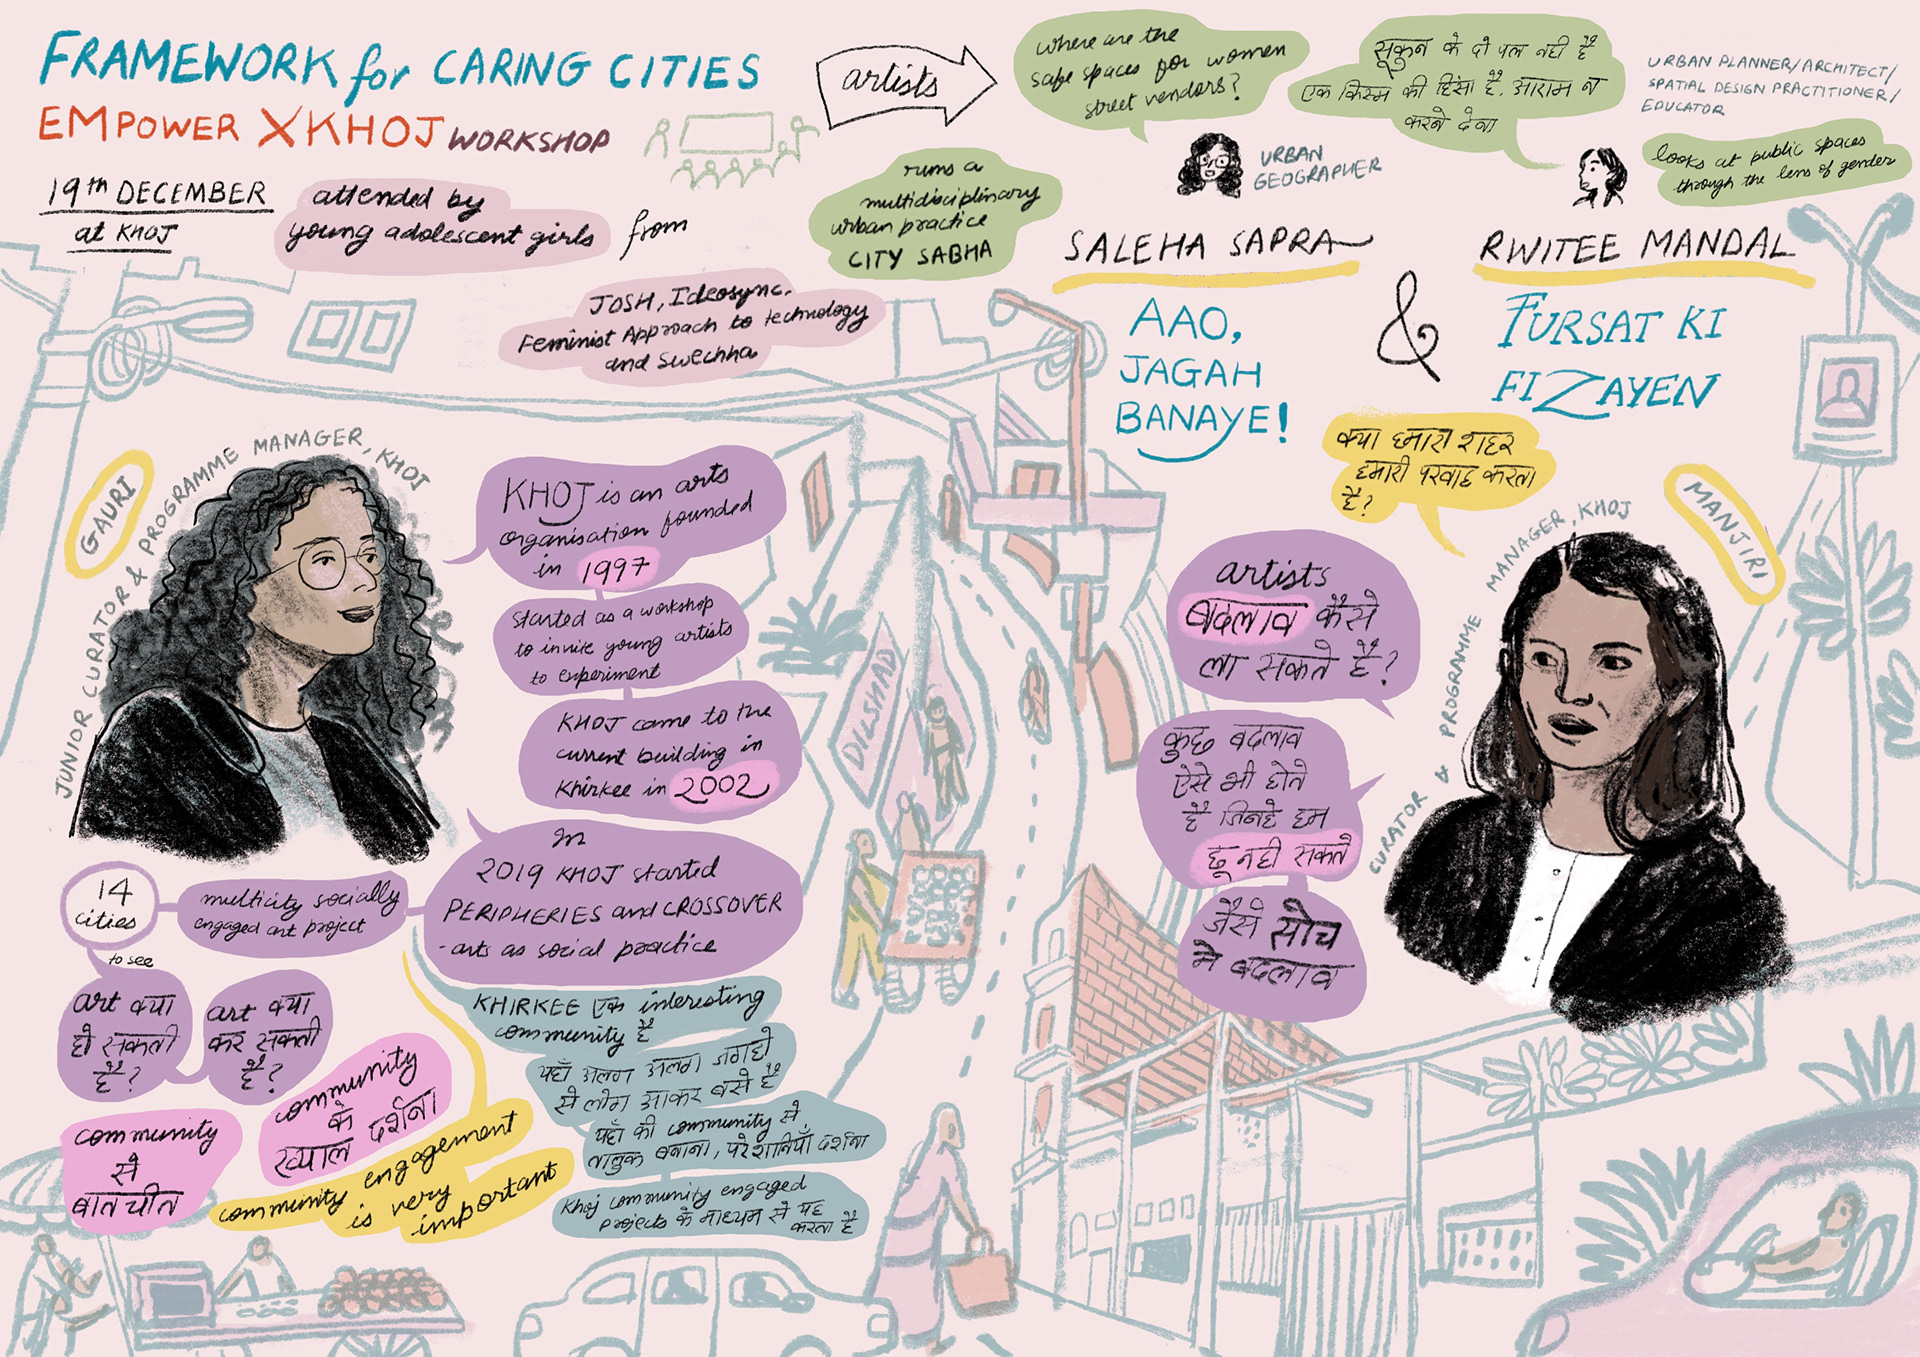 FRAMEWORK for CARING CITIES
EMPOWER X KHOJ WORKSHOP
19th DECEMBER
at KHOJ
attended by
young adolescent girls
from
JOSH, Ideosync,
Feminist Approach to technology
and Swechha
artists
where are the
safe spaces for women
street vendors?
URBAN
GEOGRAPHER
runs a
multidisciplinary
urban practice
CITY SABHA
SALEHA SAPRA
AAO,
JAGAH
BANAYE!
&
सुकून के दो पल नहीं है
एक किस्म की हिंसा है, आराम न
करने देना
URBAN PLANNER/ARCHITECT/
SPATIAL DESIGN PRACTITIONER/
EDUCATOR
looks at public spaces
through the lens of gender
RWITEE MANDAL
FURSAT KI
FIZAYEN
GAURI
JUNIOR CURATOR & PROGRAMME MANAGER, KHOJ
KHOJ is an arts
organisation founded
in 1997
started as a workshop
to invite young artists
to experiment
KHOJ came to the
current building in
Khirkee in 2002
In
2019 KHOJ started
PERIPHERIES and CROSSOVER
- arts as social practice
multicity socially
engaged art project
14
cities
to see
art क्या
हो सकती
है?
art क्या
कर सकती
है?
community
के
ख्याल दर्शाना
community
से
बातचीत
community engagement
is very
important
KHIRKEE एक interesting
community है
यहाँ अलग अलग जगहों
से लोग आकर बसे हैं
यहाँ की community से
तालुक बनाना, परेशानियाँ दर्शाना
Khoj community engaged
projects के माध्यम से यह
करता है
DILSHAD
क्या हमारा शहर
हमारी परवाह करता
है?
MANJIRI
CURATOR & PROGRAMME MANAGER, KHOJ
artists
बदलाव कैसे
ला सकते है?
कुछ बदलाव
ऐसे भी होते
है जिनहे हम
छू नही सकते
जैसे सोच
मे बदलाव